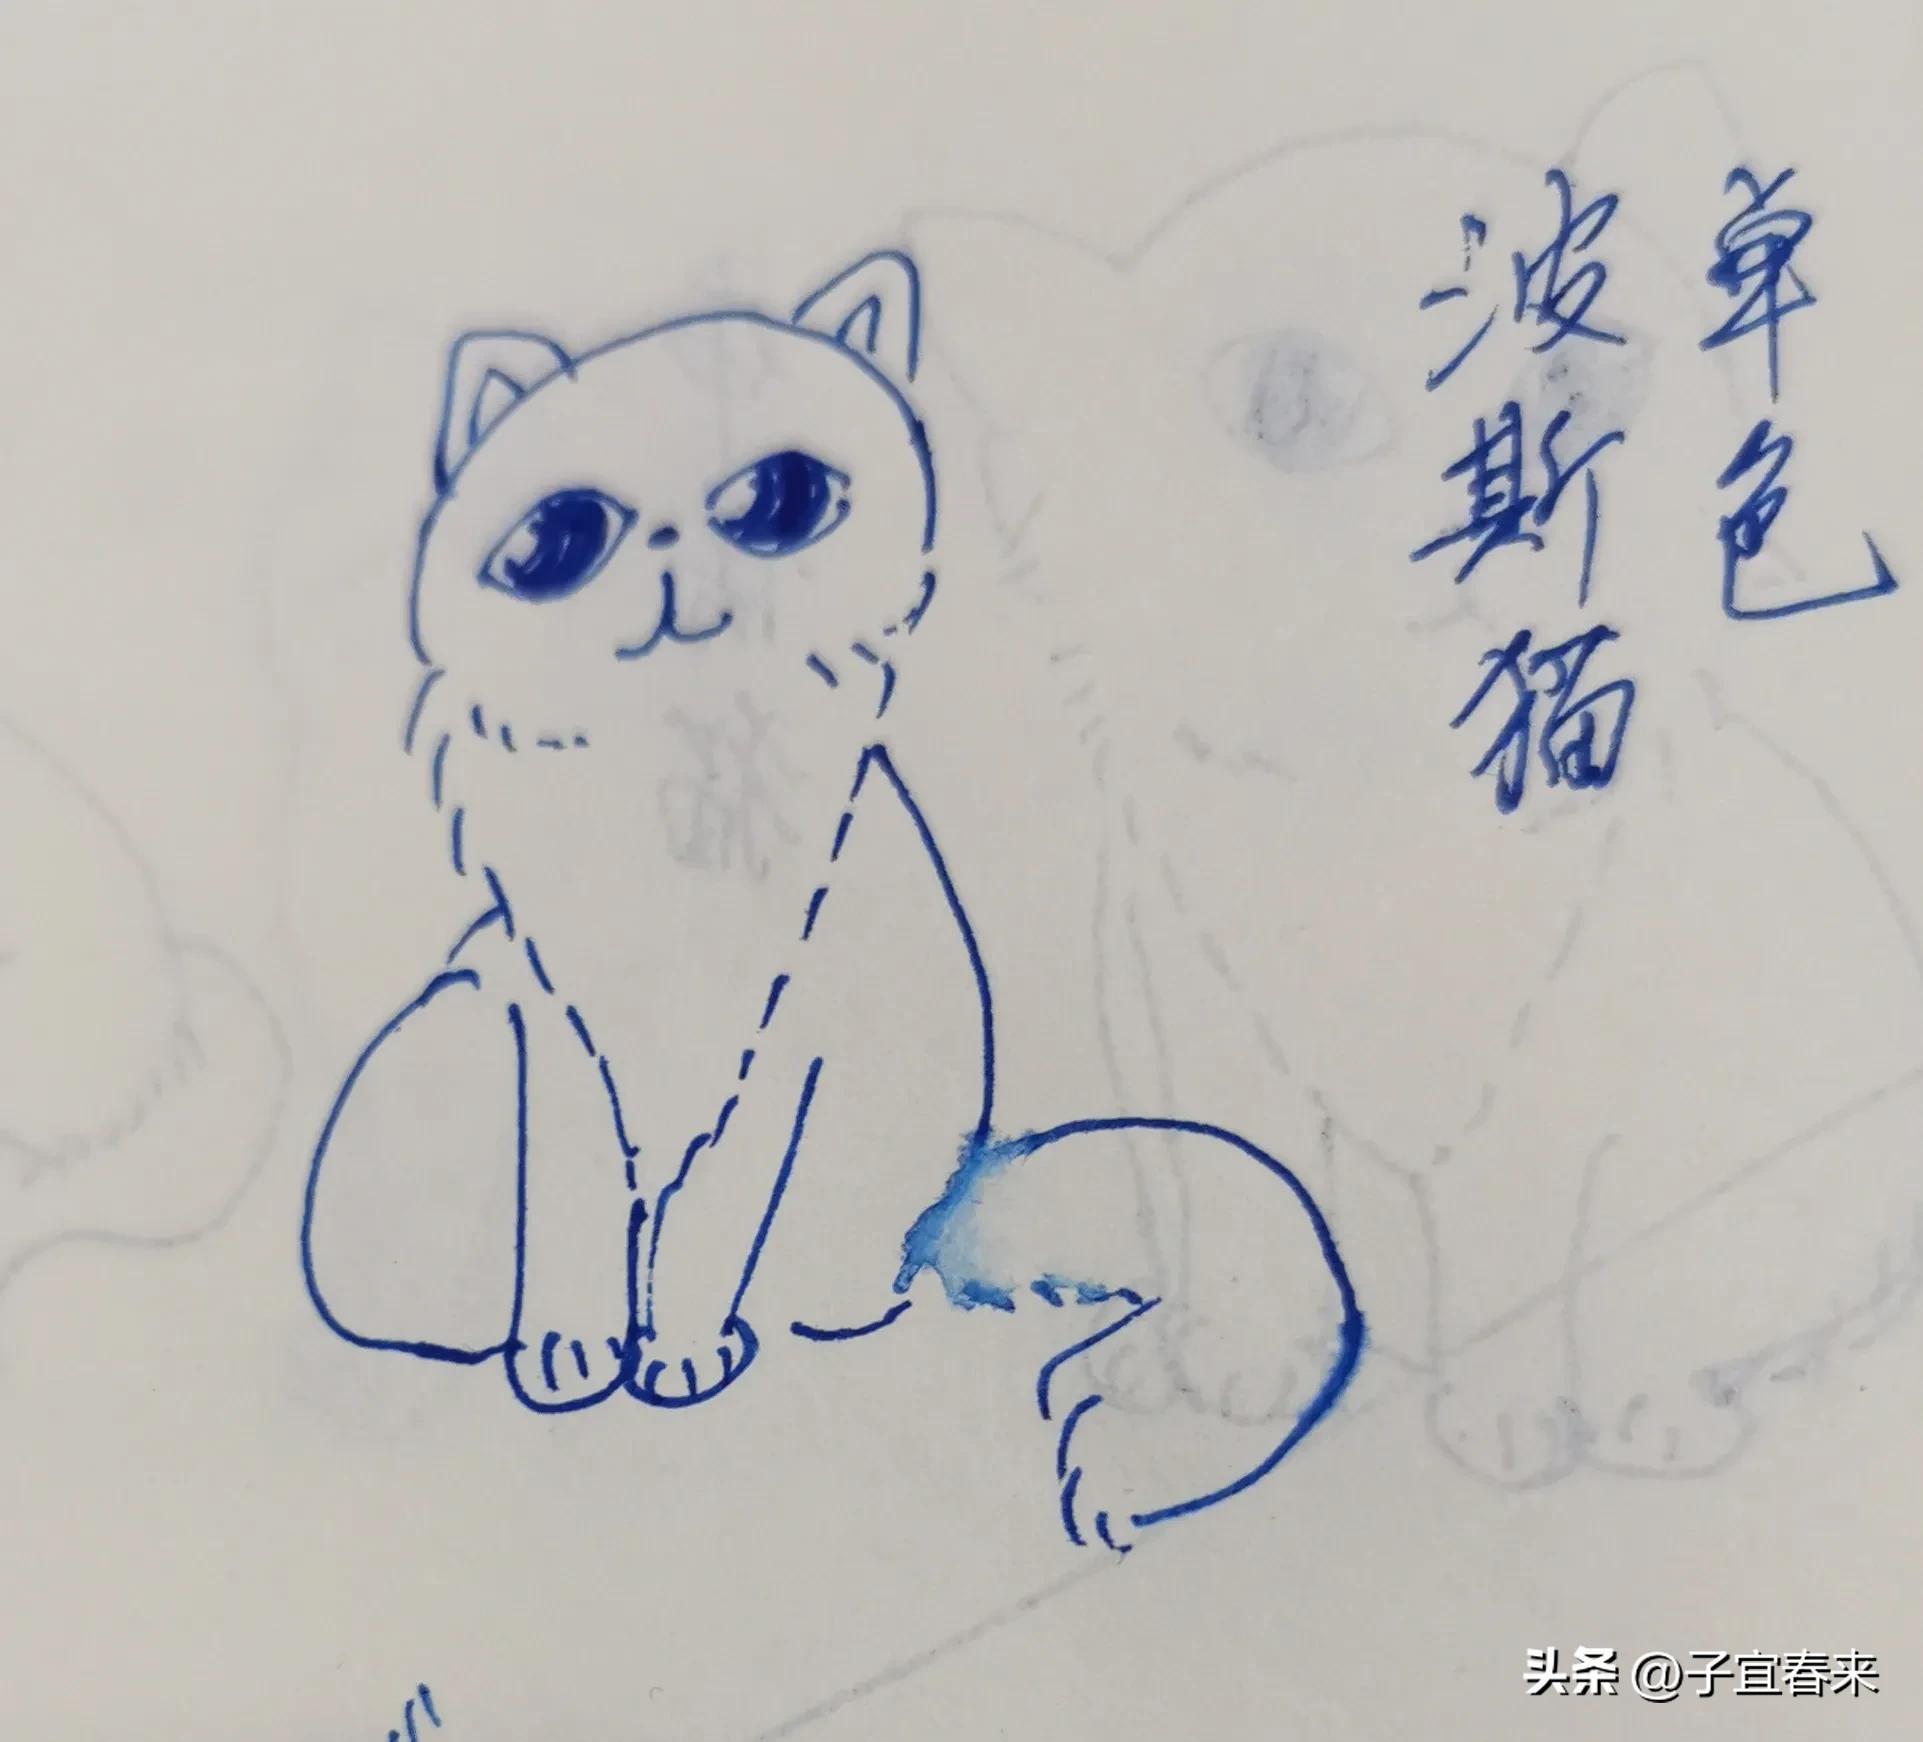 单色
波斯猫
头条 @子宜春来